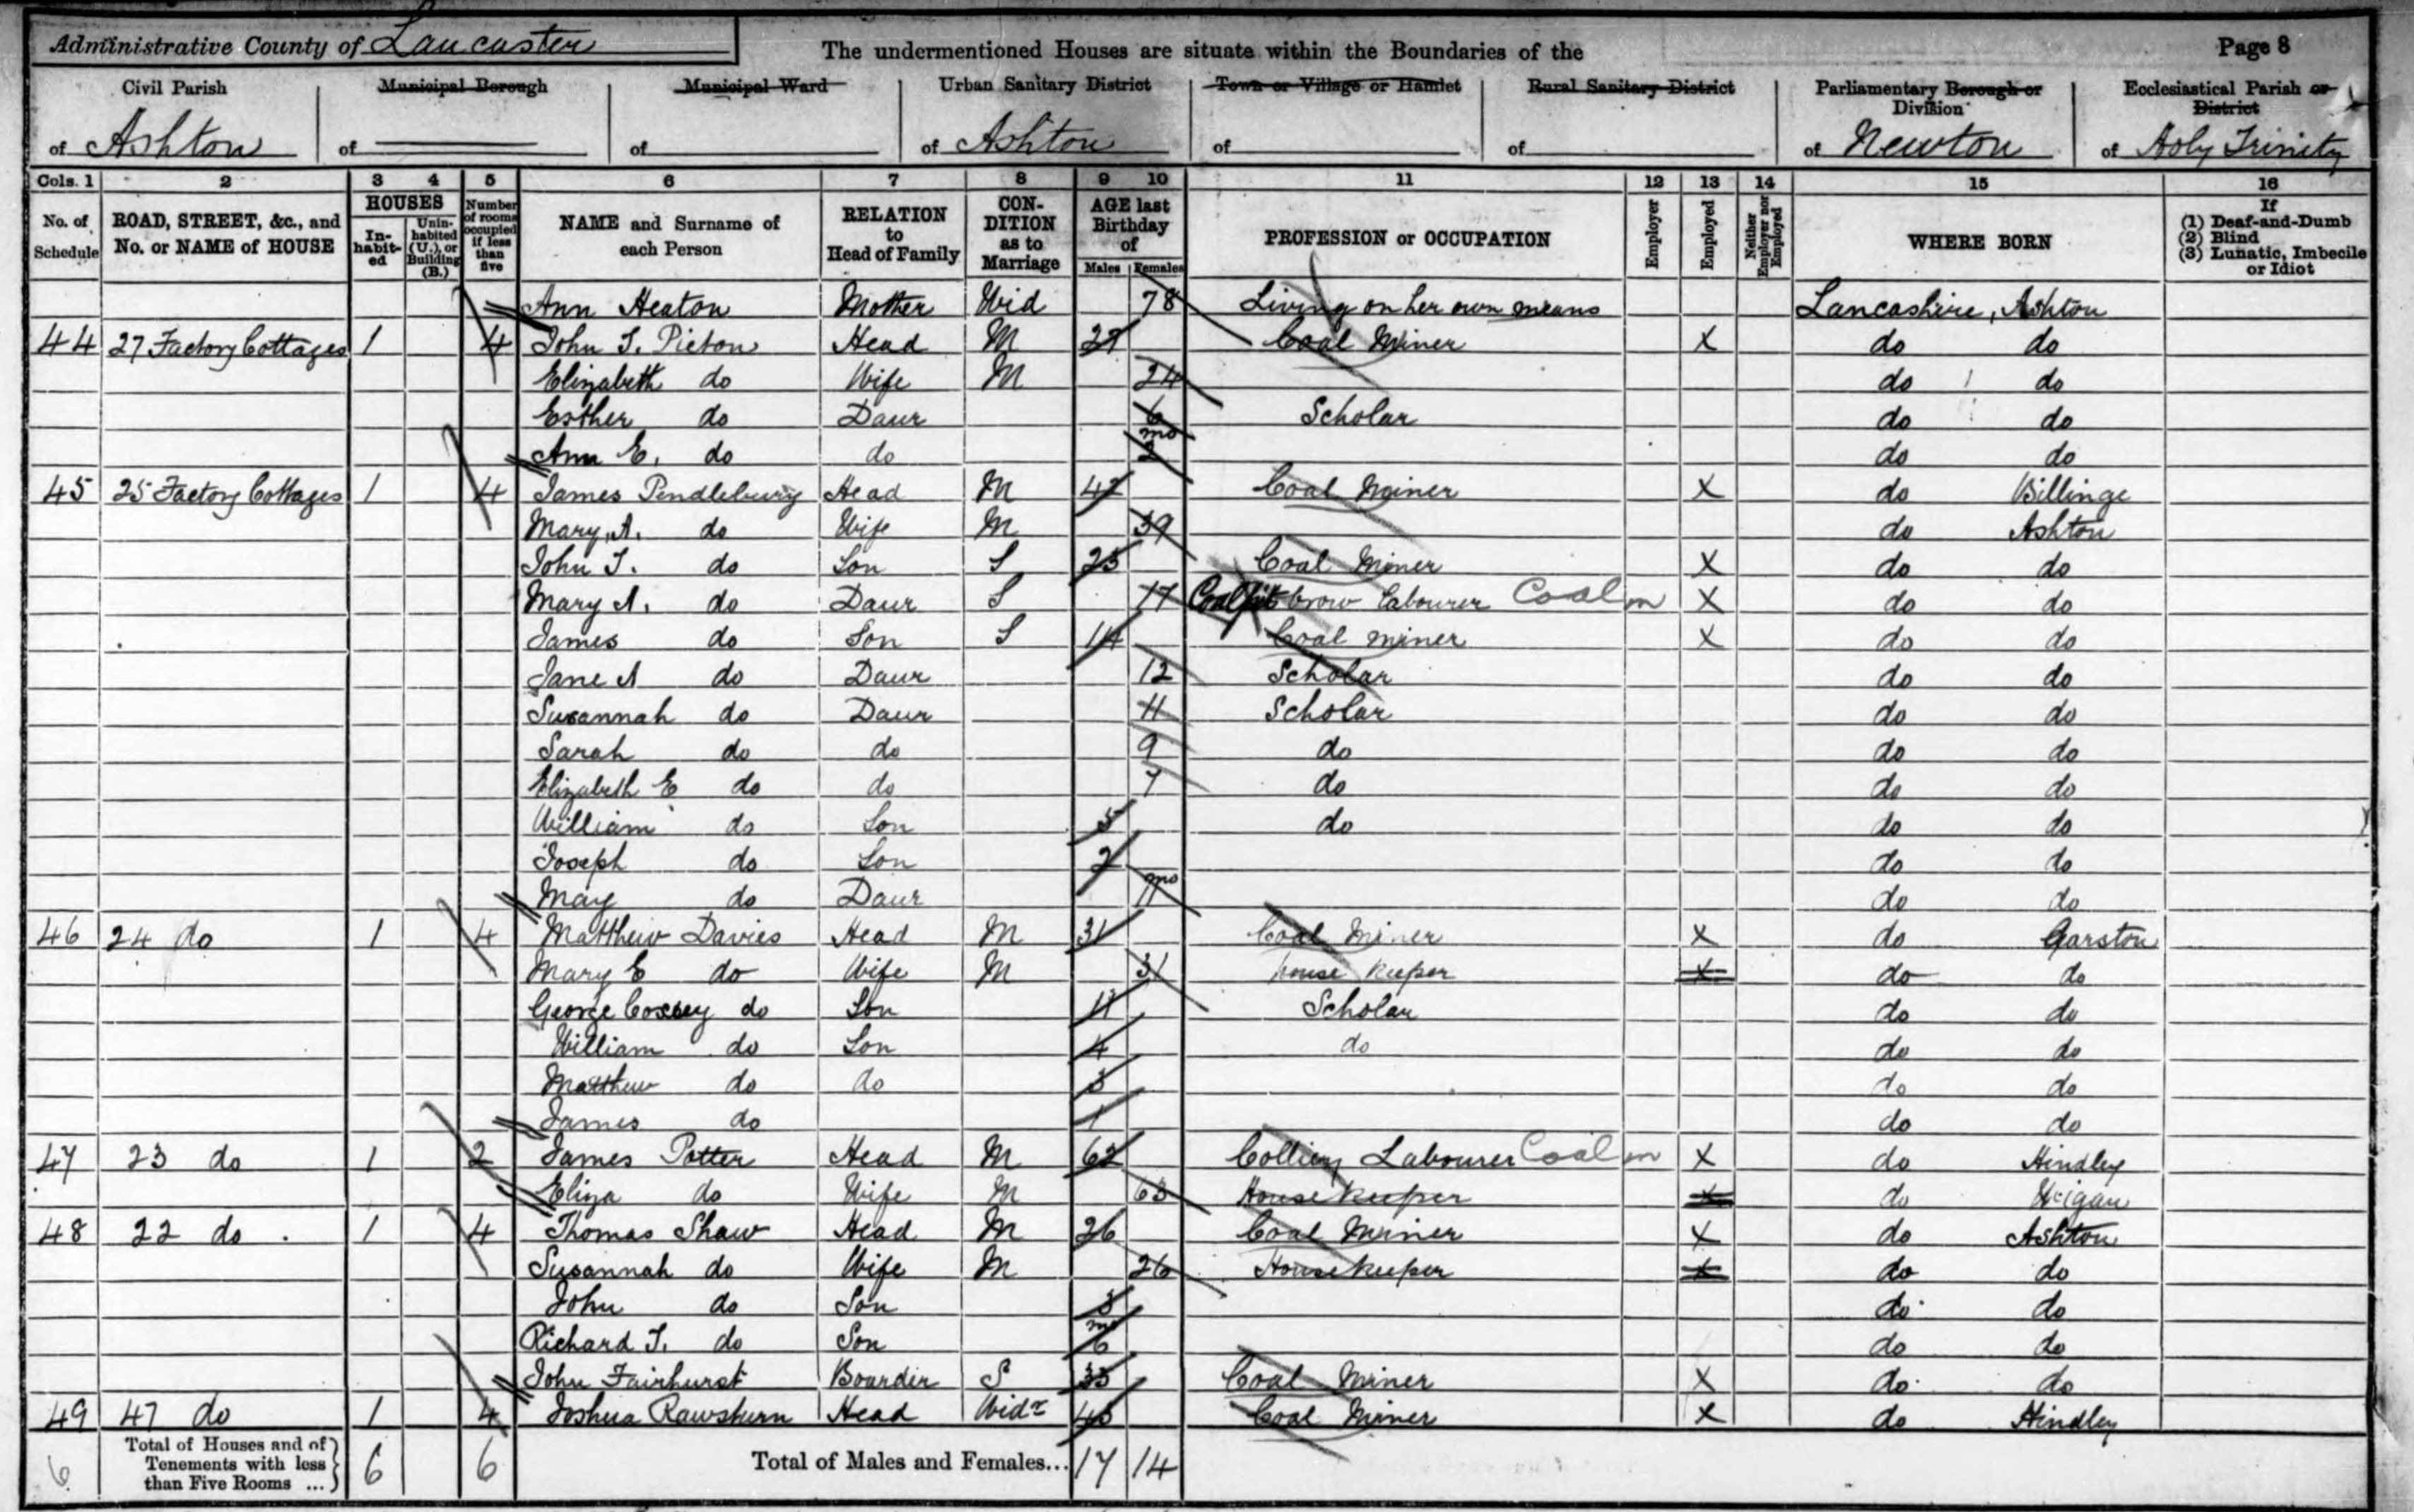 Administrative County of Lancaster
The undermentioned Houses are situate within the Boundaries of the
Page 8
Civil Parish of Ashton
Municipal Borough of
Municipal Ward of
Urban Sanitary District of Ashton
Town or Village or Hamlet of
Rural Sanitary District of
Parliamentary Borough or Division of Newton
Ecclesiastical Parish or District of Holy Trinity
Cols. 1 2 3 4 5 6 7 8 9 10 11 12 13 14 15 16
No. of Schedule
ROAD, STREET, &c., and No. or NAME of HOUSE
HOUSES
In-habit-ed
Unin-habited (U.), or Building (B.)
Number of rooms occupied if less than five
NAME and Surname of each Person
RELATION to Head of Family
CON-DITION as to Marriage
AGE last Birthday of
Males Females
PROFESSION or OCCUPATION
Employer
Employed
Neither Employer nor Employed
WHERE BORN
If
(1) Deaf-and-Dumb
(2) Blind
(3) Lunatic, Imbecile or Idiot
Ann Heaton Mother Wid 78 Living on her own means Lancashire, Ashton
44 27 Factory Cottages 1 4 John T. Picton Head M 27 Coal Miner X do do
Elizabeth do Wife M 24 do do
Esther do Daur 6 Scholar do do
Ann E. do do mo do do
45 25 Factory Cottages 1 4 James Pendlebury Head M 42 Coal Miner X do Billinge
Mary A. do Wife M 39 do Ashton
John T. do Son S 23 Coal Miner X do do
Mary A. do Daur S 17 Coal pit brow labourer Coal m X do do
James do Son S 14 Coal miner X do do
Jane A do Daur 12 Scholar do do
Susannah do Daur 11 Scholar do do
Sarah do do 9 do do do
Elizabeth E do do 7 do do do
William do Son 5 do do do
Joseph do Son 2 do do
May do Daur mo 11 do do
46 24 do 1 4 Matthew Davies Head M 31 Coal Miner X do Garston
Mary E do Wife M 31 house keeper X do do
George do Son 11 Scholar do do
William do Son 4 do do do
Matthew do do 3 do do
James do 1 do do
47 23 do 1 2 James Potter Head M 62 Colliery Labourer Coal m X do Hindley
Eliza do Wife M 63 Housekeeper X do Wigan
48 22 do 1 4 Thomas Shaw Head M 26 Coal Miner X do Ashton
Susannah do Wife M 26 Housekeeper X do do
John do Son 3 do do
Richard T. do Son mo 6 do do
John Fairhurst Boarder S 33 Coal Miner X do do
49 47 do 1 4 Joshua Rawsthurn Head Widr 43 Coal Miner X do Hindley
6 Total of Houses and of Tenements with less than Five Rooms ... 6 6 Total of Males and Females... 17 14